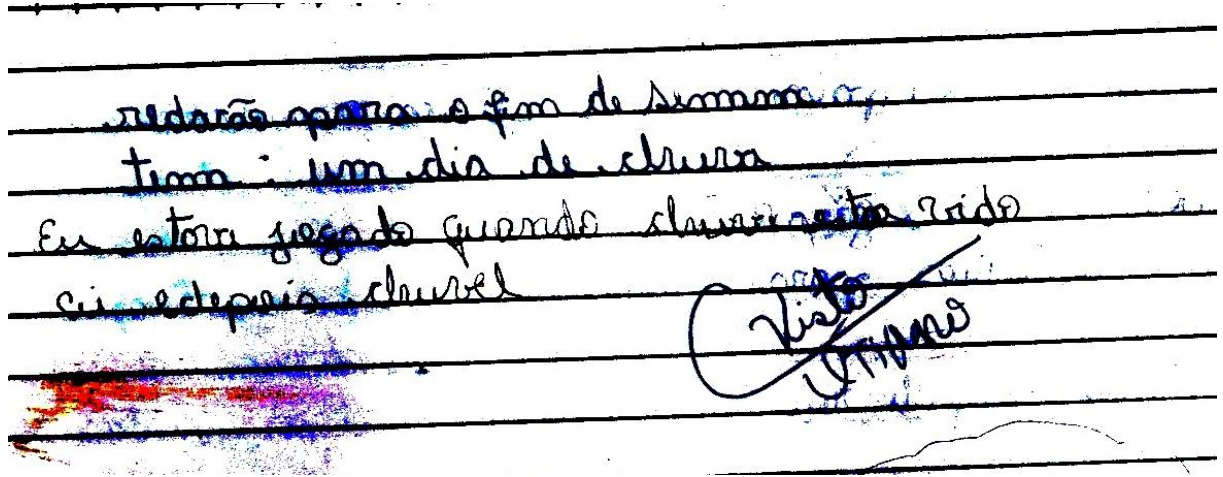 redação para o fim de semana
tema : um dia de chuva
Eu estava jogado quando
cui edepois chuvel
Visto